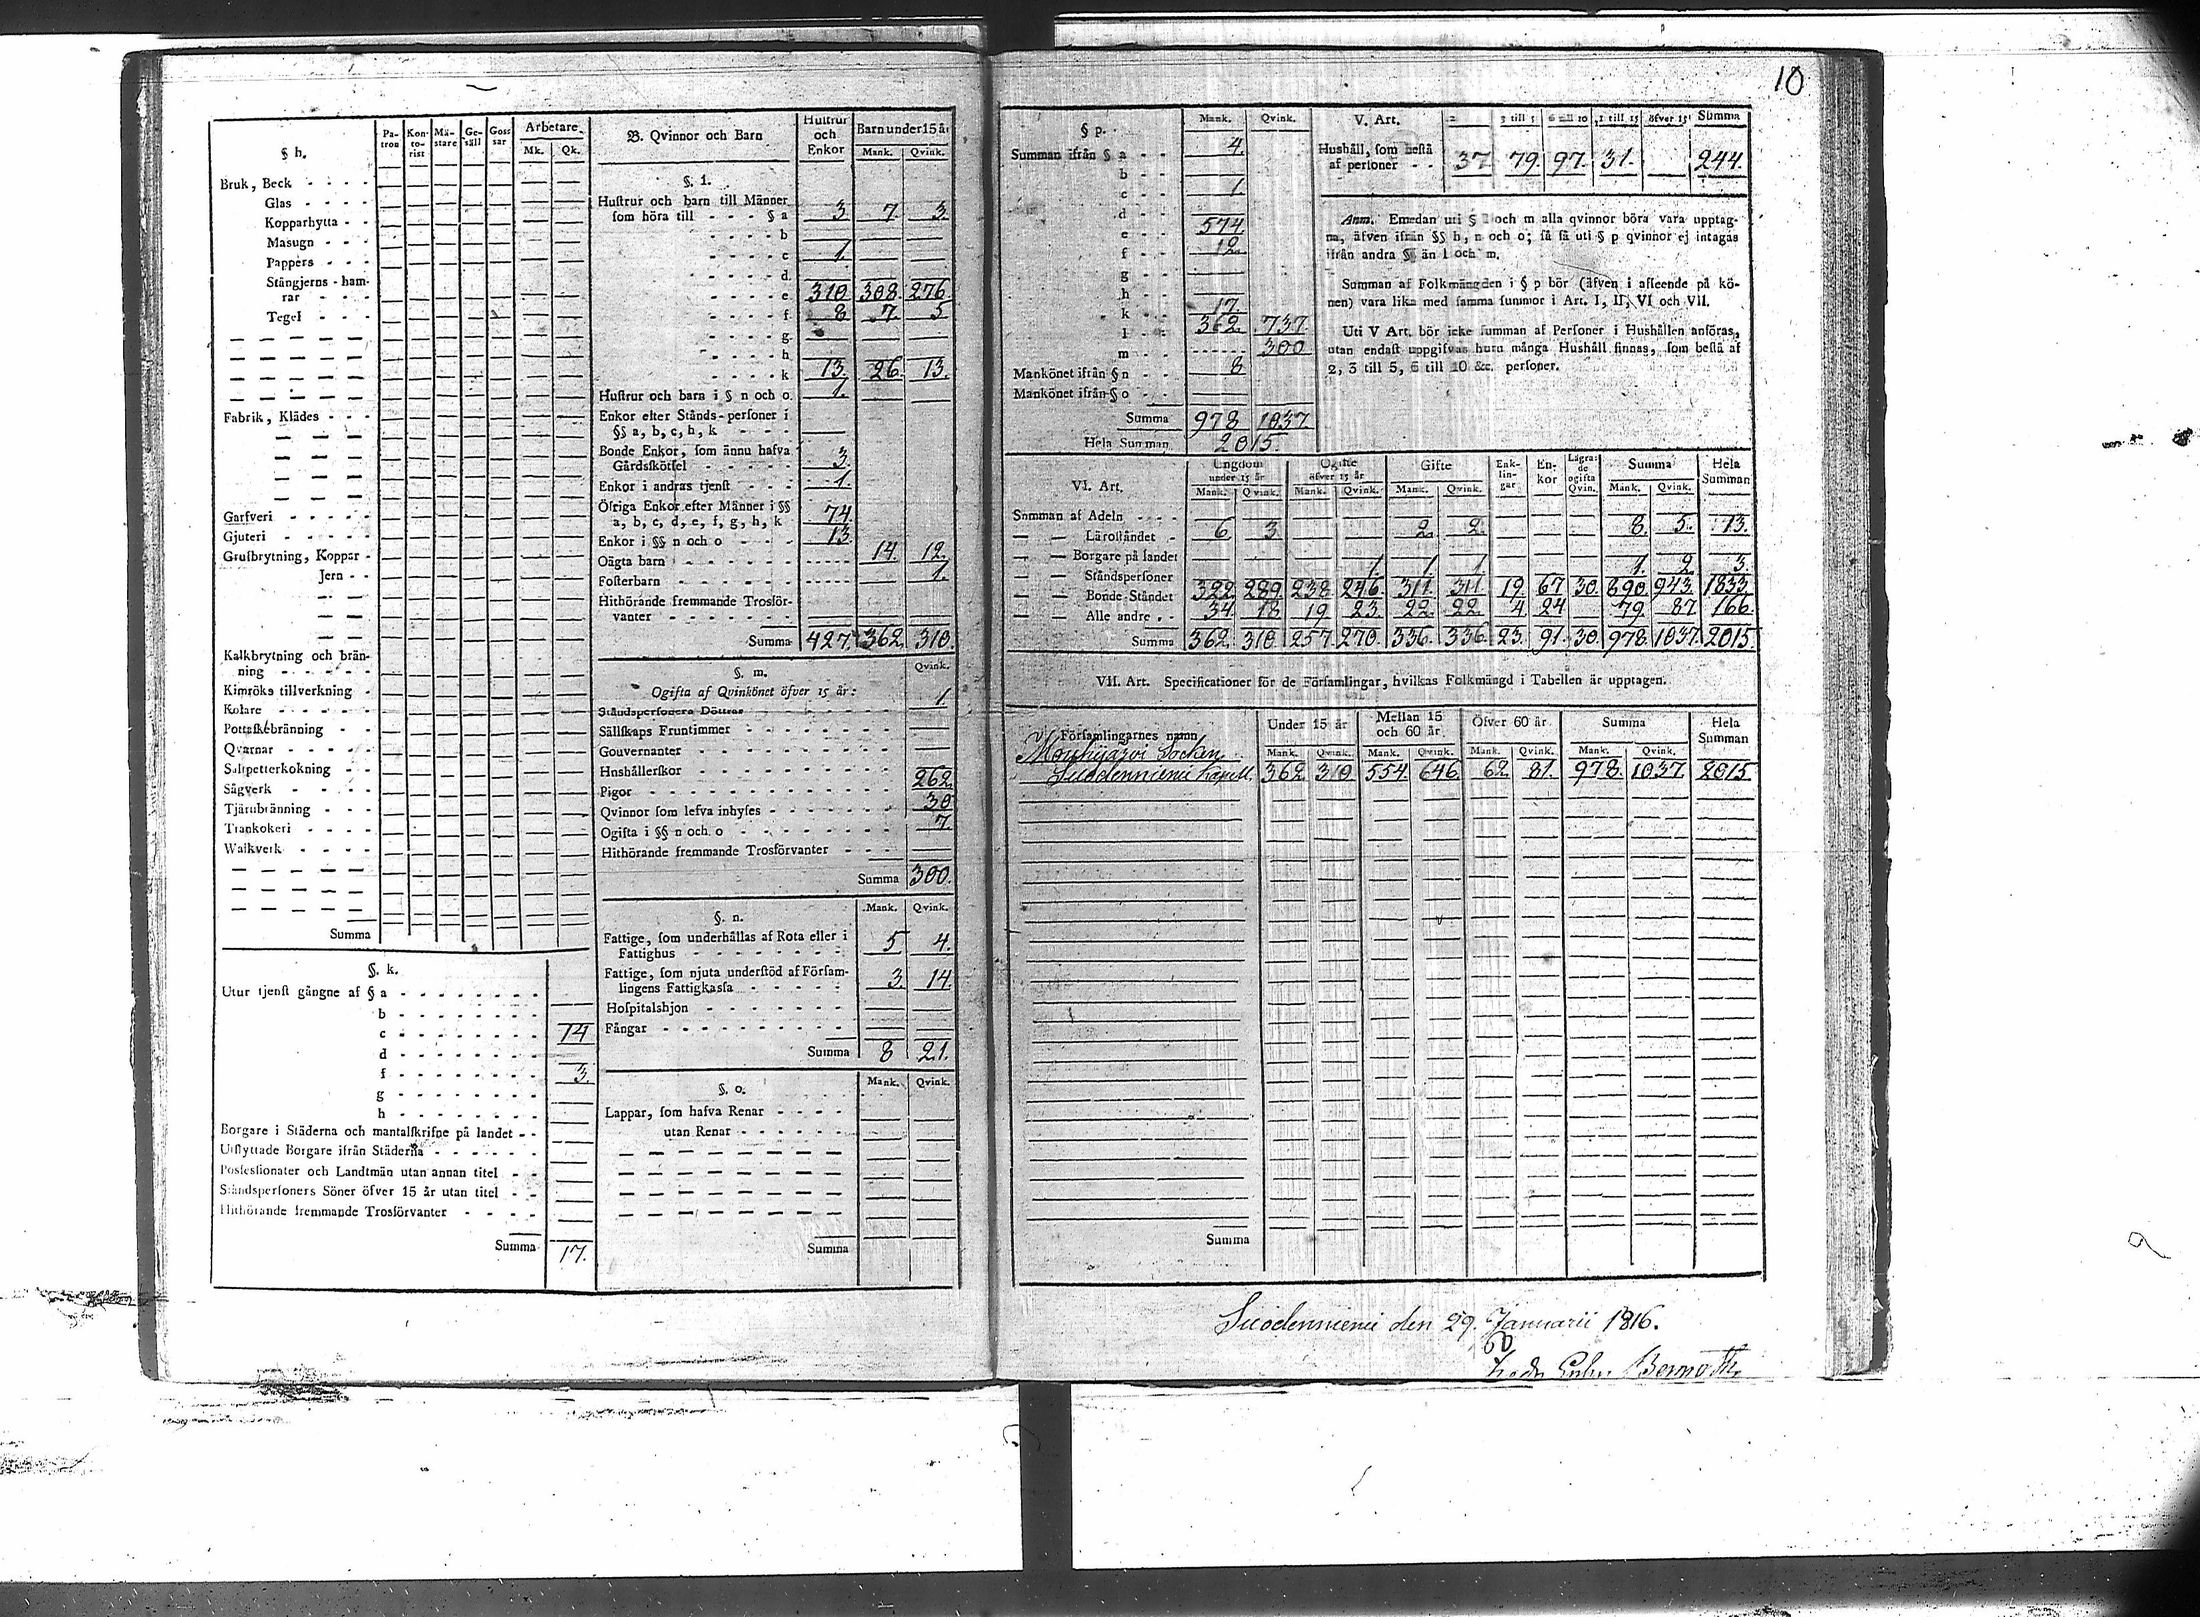 10
§ h.
Patron Kontorist Mästare Gesäll Gossar Arbetare
Mk. Qk.
Bruk, Beck
Glas
Kopparhytta
Masugn
Pappers
Stångjerns-hamrar
Tegel
Fabrik, Klädes
Garfveri
Gjuteri
Grufbrytning, Koppar
Jern
Kalkbrytning och bränning
Kimröks tillverkning
Kolare
Pottaskebränning
Qvarnar
Saltpetterkokning
Sågverk
Tjärubränning
Trankokeri
Walkverk
Summa
§. k.
Utur tjenst gångne af § a
b
c 14
d
f 3.
g
h
Borgare i Städerna och mantalskrifne på landet
Utflyttade Borgare ifrån Städerna
Possessionater och Landtmän utan annan titel
Ståndspersoners Söner öfver 15 år utan titel
Hithörande fremmande Trosförvanter
Summa 17.
B. Qvinnor och Barn Hustrur och Enkor Barn under 15 år
Mank. Qvink.
§. l.
Hustrur och barn till Männer
som höra till § a 3 7. 3.
b
c 1.
d
e 310 308. 276
f 8 7. 5
g
h
k 13. 26. 13.
Hustrur och barn i § n och o. 1.
Enkor efter Stånds-personer i
§§ a, b, c, h, k
Bonde Enkor, som ännu hafva
Gårdsskötsel 3.
Enkor i andras tjenst 1.
Öfriga Enkor efter Männer i §§
a, b, c, d, e, f, g, h, k 74
Enkor i §§ n och o 13
Oägta barn 14. 12.
Fosterbarn 1.
Hithörande fremmande Trosförvanter
Summa 427. 362. 310.
§. m. Qvink.
Ogifta af Qvinkönet öfver 15 år:
Ståndspersoners Döttrar 1.
Sällskaps Fruntimmer
Gouvernanter
Hushållerskor
Pigor 262.
Qvinnor som lefva inhyses 30
Ogifta i §§ n och o 7.
Hithörande fremmande Trosförvanter
Summa 300.
§. n. Mank. Qvink.
Fattige, som underhållas af Rota eller i
Fattighus 5 4.
Fattige, som njuta understöd af Församlingens Fattigkassa 3. 14.
Hospitalshjon
Fångar
Summa 8 21.
§. o. Mank. Qvink.
Lappar, som hafva Renar
utan Renar
Summa
§ p. Mank. Qvink.
Summan ifrån § a 4.
b
c 1.
d
e 574
f 12.
g
h
k 17.
l 362. 737.
m 300
Mankönet ifrån § n 8
Mankönet ifrån § o
Summa 978 1037.
Hela Summan 2015.
V. Art. 2 3 till 5 6 till 10 11 till 15 öfver 15 Summa
Hushåll, som bestå
af personer 37. 79. 97. 31. 244.
Anm. Emedan uti § l och m alla qvinnor böra vara upptagna, äfven ifrån §§ h, n och o; så få uti § p qvinnor ej intagas
ifrån andra §§ än l och m.
Summan af Folkmängden i § p bör (äfven i afseende på könen) vara lika med samma summor i Art. I, II, VI och VII.
Uti V Art. bör icke summan af Personer i Hushållen anföras,
utan endast uppgifvas huru många Hushåll finnas, som bestå af
2, 3 till 5, 6 till 10 &c. personer.
VI. Art. Ungdom under 15 år Ogifte öfver 15 år Gifte Enklingar Enkor Lägrade ogifta Qvin. Summa Hela Summan
Mank. Qvink. Mank. Qvink. Mank. Qvink. Mank. Qvink.
Summan af Adeln
Läroståndet 6 3 2. 2. 8. 5. 13.
Borgare på landet
Ståndspersoner 1. 1 1 1. 2. 3.
Bonde-Ståndet 322. 289. 238. 246. 311. 311. 19. 67 30. 890. 943. 1833.
Alle andre 34. 18 19 23 22. 22. 4 24 79. 87 166.
Summa 362. 310. 257. 270. 336. 336. 23. 91. 30. 978. 1037. 2015.
VII. Art. Specificationer för de Församlingar, hvilkas Folkmängd i Tabellen är upptagen.
Församlingarnes namn Under 15 år Mellan 15 och 60 år. Öfver 60 år. Summa Hela Summan
Mank. Qvink. Mank. Qvink. Mank. Qvink. Mank. Qvink.
Mouhijärvi Socken
Suodenniemi Capell. 362. 310 554. 646. 62. 81. 978. 1037. 2015.
Summa
Suodenniemi den 29. Januarii 1816.